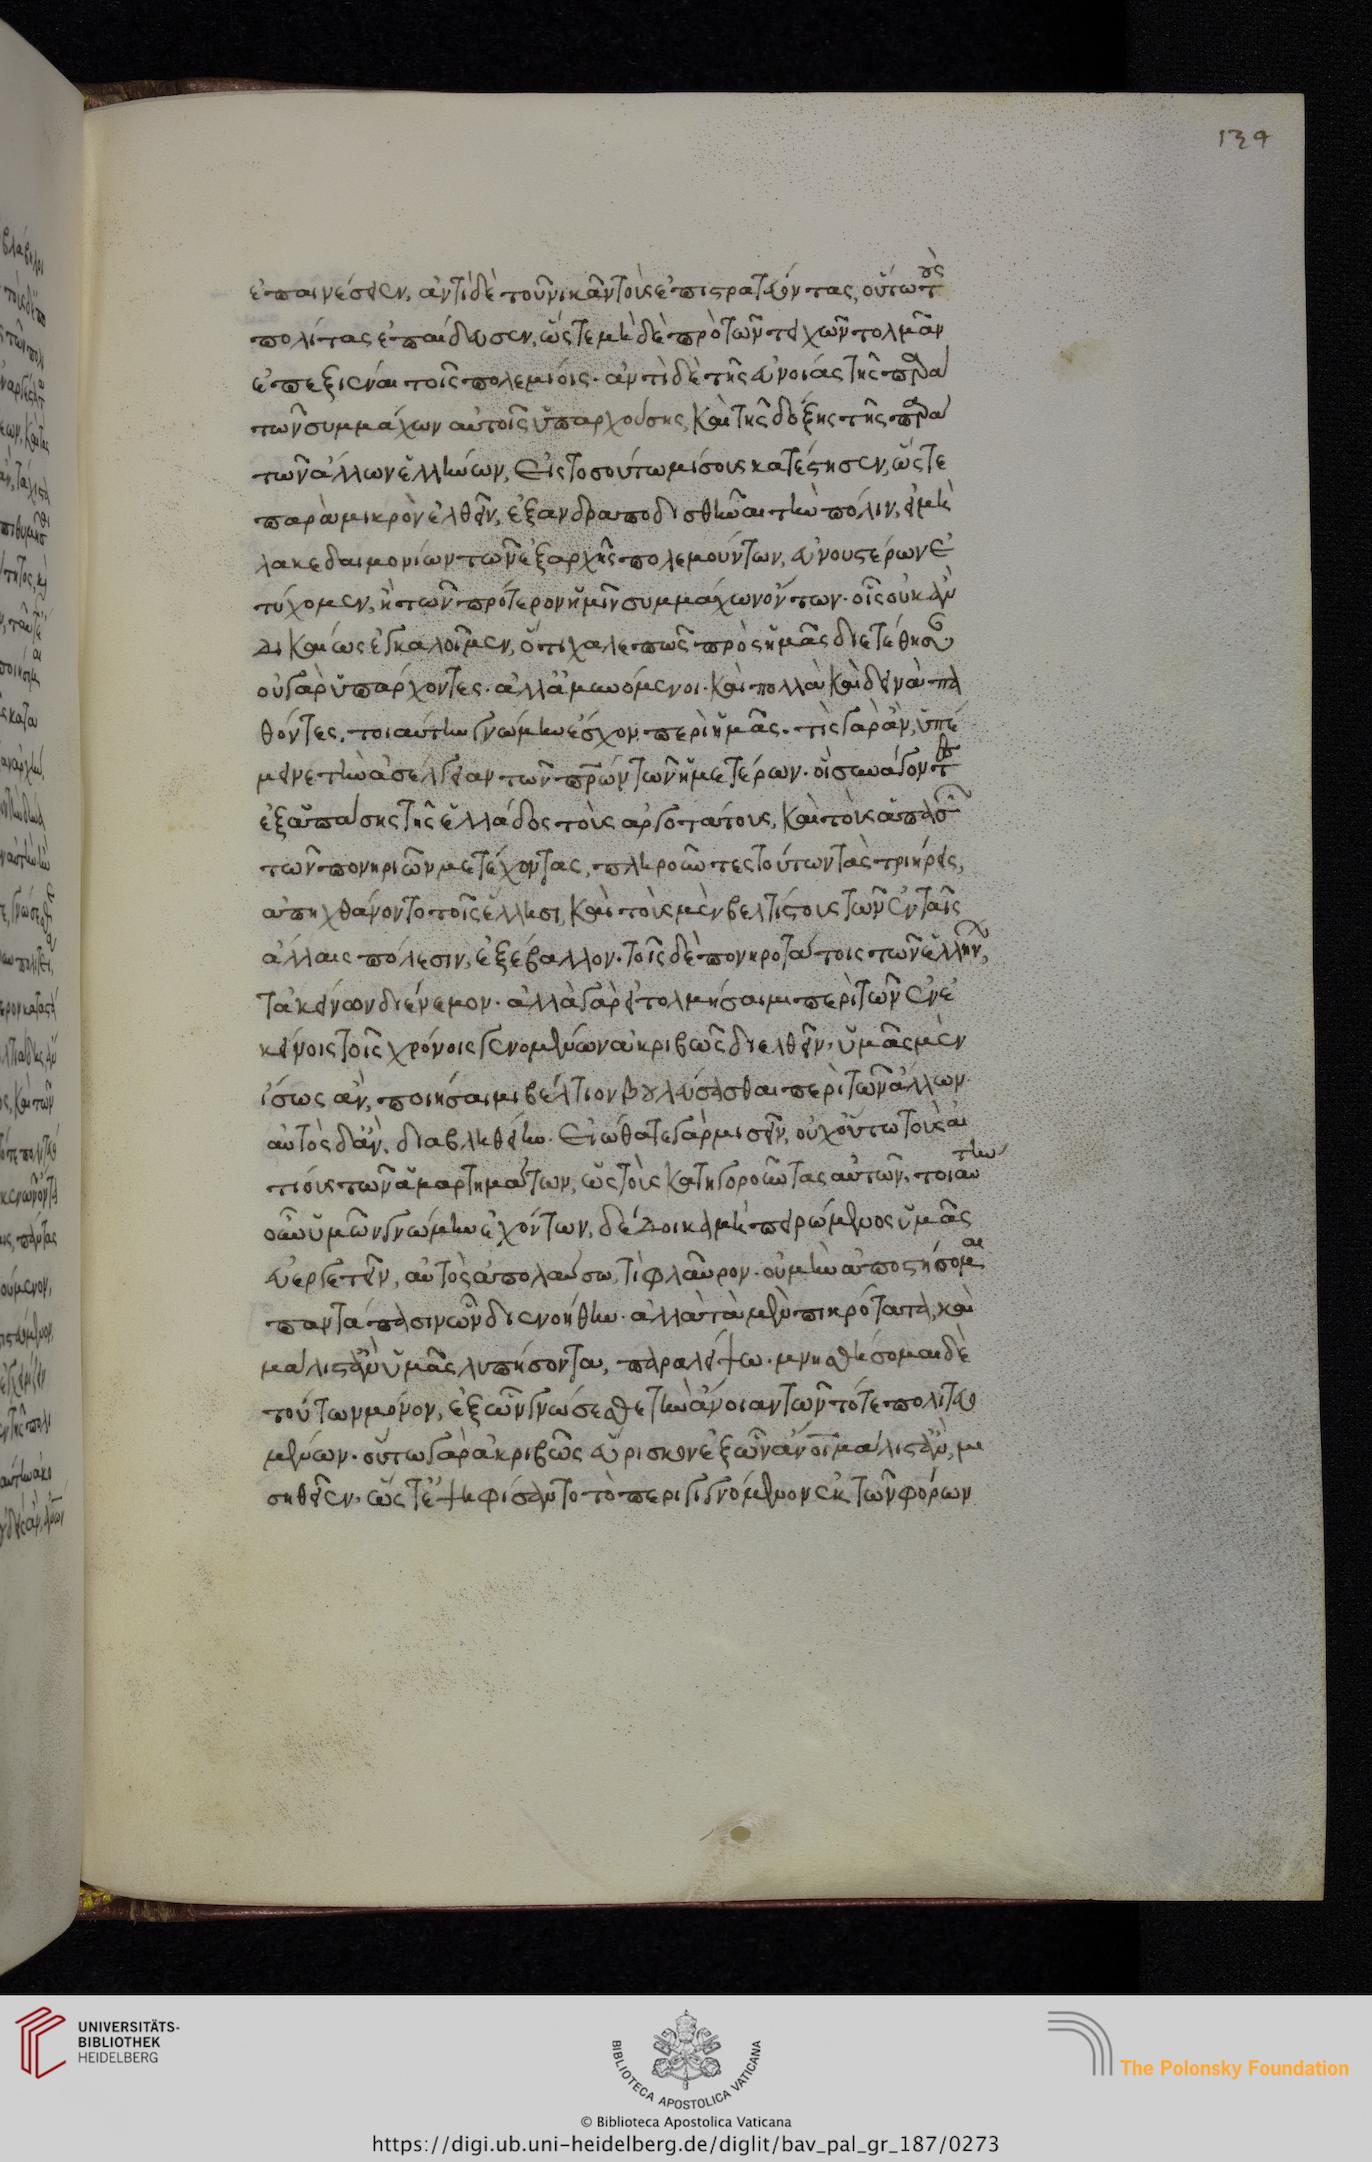 139
ἐπαινέσειεν, ἀντὶ δὲ τοῦ νικᾶν τοὺς ἐπιστρατεύοντας, οὕτω τοὺς
πολίτας ἐπαίδευσεν, ὥστε μὴ δὲ πρὸ τῶν τειχῶν τολμᾶν
ἐπεξιέναι τοῖς πολεμίοις· ἀντὶ δὲ τῆς εὐνοίας τῆς παρὰ
τῶν συμμάχων αὐτοῖς ὑπαρχούσης, καὶ τῆς δόξης τῆς παρὰ
τῶν ἄλλων ἑλλήνων, εἰς τοσοῦτο μίσους κατέστησεν, ὥστε
παρὰ μικρὸν ἐλθεῖν, ἐξανδραποδισθῆναι τὴν πόλιν, εἰ μὴ
λακεδαιμονίων τῶν ἐξ ἀρχῆς πολεμούντων, εὐνουστέρων ἐ
τύχομεν, ἢ τῶν πρότερον ἡμῖν συμμάχων ὄντων· οἷς οὐκ ἂν
δικαίως ἐγκαλοῖμεν, ὅτι χαλεπῶς πρὸς ἡμᾶς διετέθησαν
οὐ γὰρ ὑπάρχοντες· ἀλλ' ἀμυνόμενοι· καὶ πολλὰ καὶ δεινὰ πα
θόντες, τοιαύτην γνώμην ἔσχον περὶ ἡμᾶς· τίς γὰρ ἂν, ὑπέ
μεινε τὴν ἀσέλγειαν τῶν πρων τῶν ἡμετέρων· οἳ συνάγοντες
ἐξ ἁπάσης τῆς ἑλλάδος τοὺς ἀργοτάτους, καὶ τοὺς ἁπασῶν
τῶν πονηριῶν μετέχοντας, πληροῦντες τούτων τὰς τριήρεις,
ἀπηχθάνοντο τοῖς ἕλλησι, καὶ τοὺς μὲν βελτίστους τῶν ἐν ταῖς
ἄλλαις πόλεσιν, ἐξέβαλλον· τοῖς δὲ πονηροτάτοις τῶν ἑλλήνων,
τἀκείνων διένεμον· ἀλλὰ γὰρ εἰ τολμήσαιμι περὶ τῶν ἐν ἐ
κείνοις τοῖς χρόνοις γενομένων ἀκριβῶς διελθεῖν, ὑμᾶς μὲν
ἴσως ἂν, ποιήσαιμι βέλτιον βουλεύσασθαι περὶ τῶν ἄλλων·
αὐτὸς δ' ἂν, διαβληθείην· εἰώθατε γὰρ μισεῖν, οὐχ οὕτω τοὺς αἰ
τίους τῶν ἁμαρτημάτων, ὡς τοὺς κατηγοροῦντας αὐτῶν· τοιαύτην
οὖν ὑμῶν γνώμην ἐχόντων, δέδοικα μὴ πειρώμενος ὑμᾶς
εὐεργετεῖν, αὐτὸς ἀπολαύσω τι φλαῦρον· οὐ μὴν ἀποστήσομαι
παντάπασιν ὧν διενοήθην· ἀλλὰ τὰ μὲν πικρότατα, καὶ
μάλιστ' ἂν ὑμᾶς λυπήσοντα, παραλείψω· μνησθήσομαι δὲ
τούτων μόνον, ἐξ ὧν γνώσεσθε τὴν ἄνοιαν τῶν τότε πολιτευο
μένων· οὕτω γὰρ ἀκριβῶς εὕρισκον ἐξ ὧν ἄνθρωποι μάλιστ' ἂν, μι
σηθεῖεν, ὥστ' ἐψηφίσαντο τὸ περιγιγνόμενον ἐκ τῶν φόρων
UNIVERSITÄTS-
BIBLIOTHEK
HEIDELBERG
BIBLIOTECA APOSTOLICA VATICANA
The Polonsky Foundation
© Biblioteca Apostolica Vaticana
https://digi.ub.uni-heidelberg.de/diglit/bav_pal_gr_187/0273